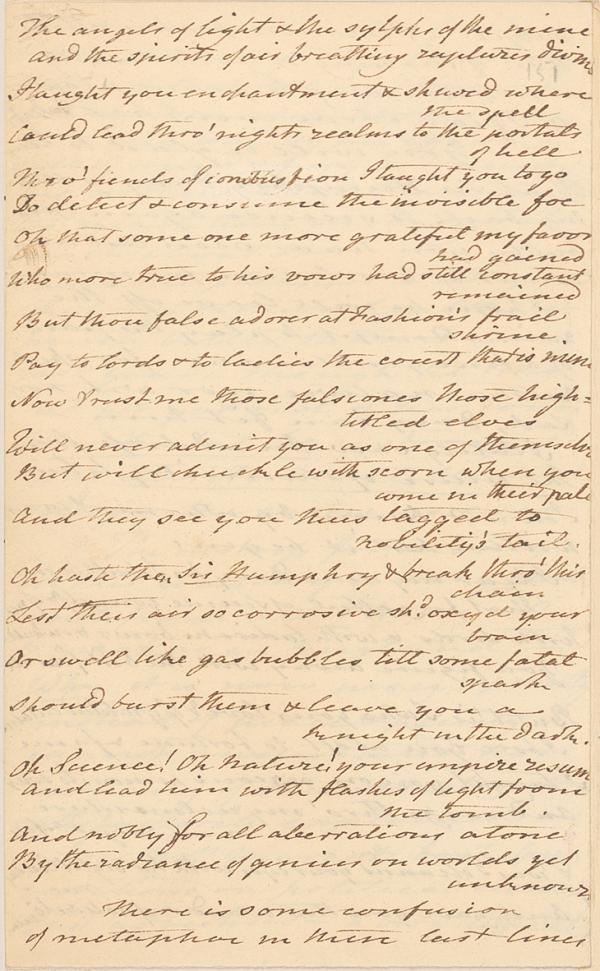 The angels of light & the sylphs of the mine
and the spirits of air breathing raptures divine
151
I taught you enchantment & shewed where
the spell
Could lead thro' night's realms to the portals
of hell
Thro' fiends of combustion I taught you to go
To detect & consume the invisible foe
Oh that some one more grateful my favor
had gained
Who more true to his vows had still constant
remained
But thou false adorer at Fashion's frail
shrine
Pay to lords & to ladies the court that is mine
Now trust me those false ones those high=
titled elves
Will never admit you as one of themselv
But will chuckle with scorn when you
come in their pale
And they see you thus tagged to
nobility's tail.
Oh haste then Sir Humphry & break thro' this
chain
Lest their air so corrosive sh.d oxyd your
brain
Or swell like gas bubbles till some fatal
spark
should burst them & leave you a
knight in the dark.
Oh Science! Oh Nature! your empire resum
and lead him with flashes of light from
the tomb.
And nobly for all aberrations atone
By the radiance of genius on worlds yet
unknown
There is some confusion
of metaphor in these last lines